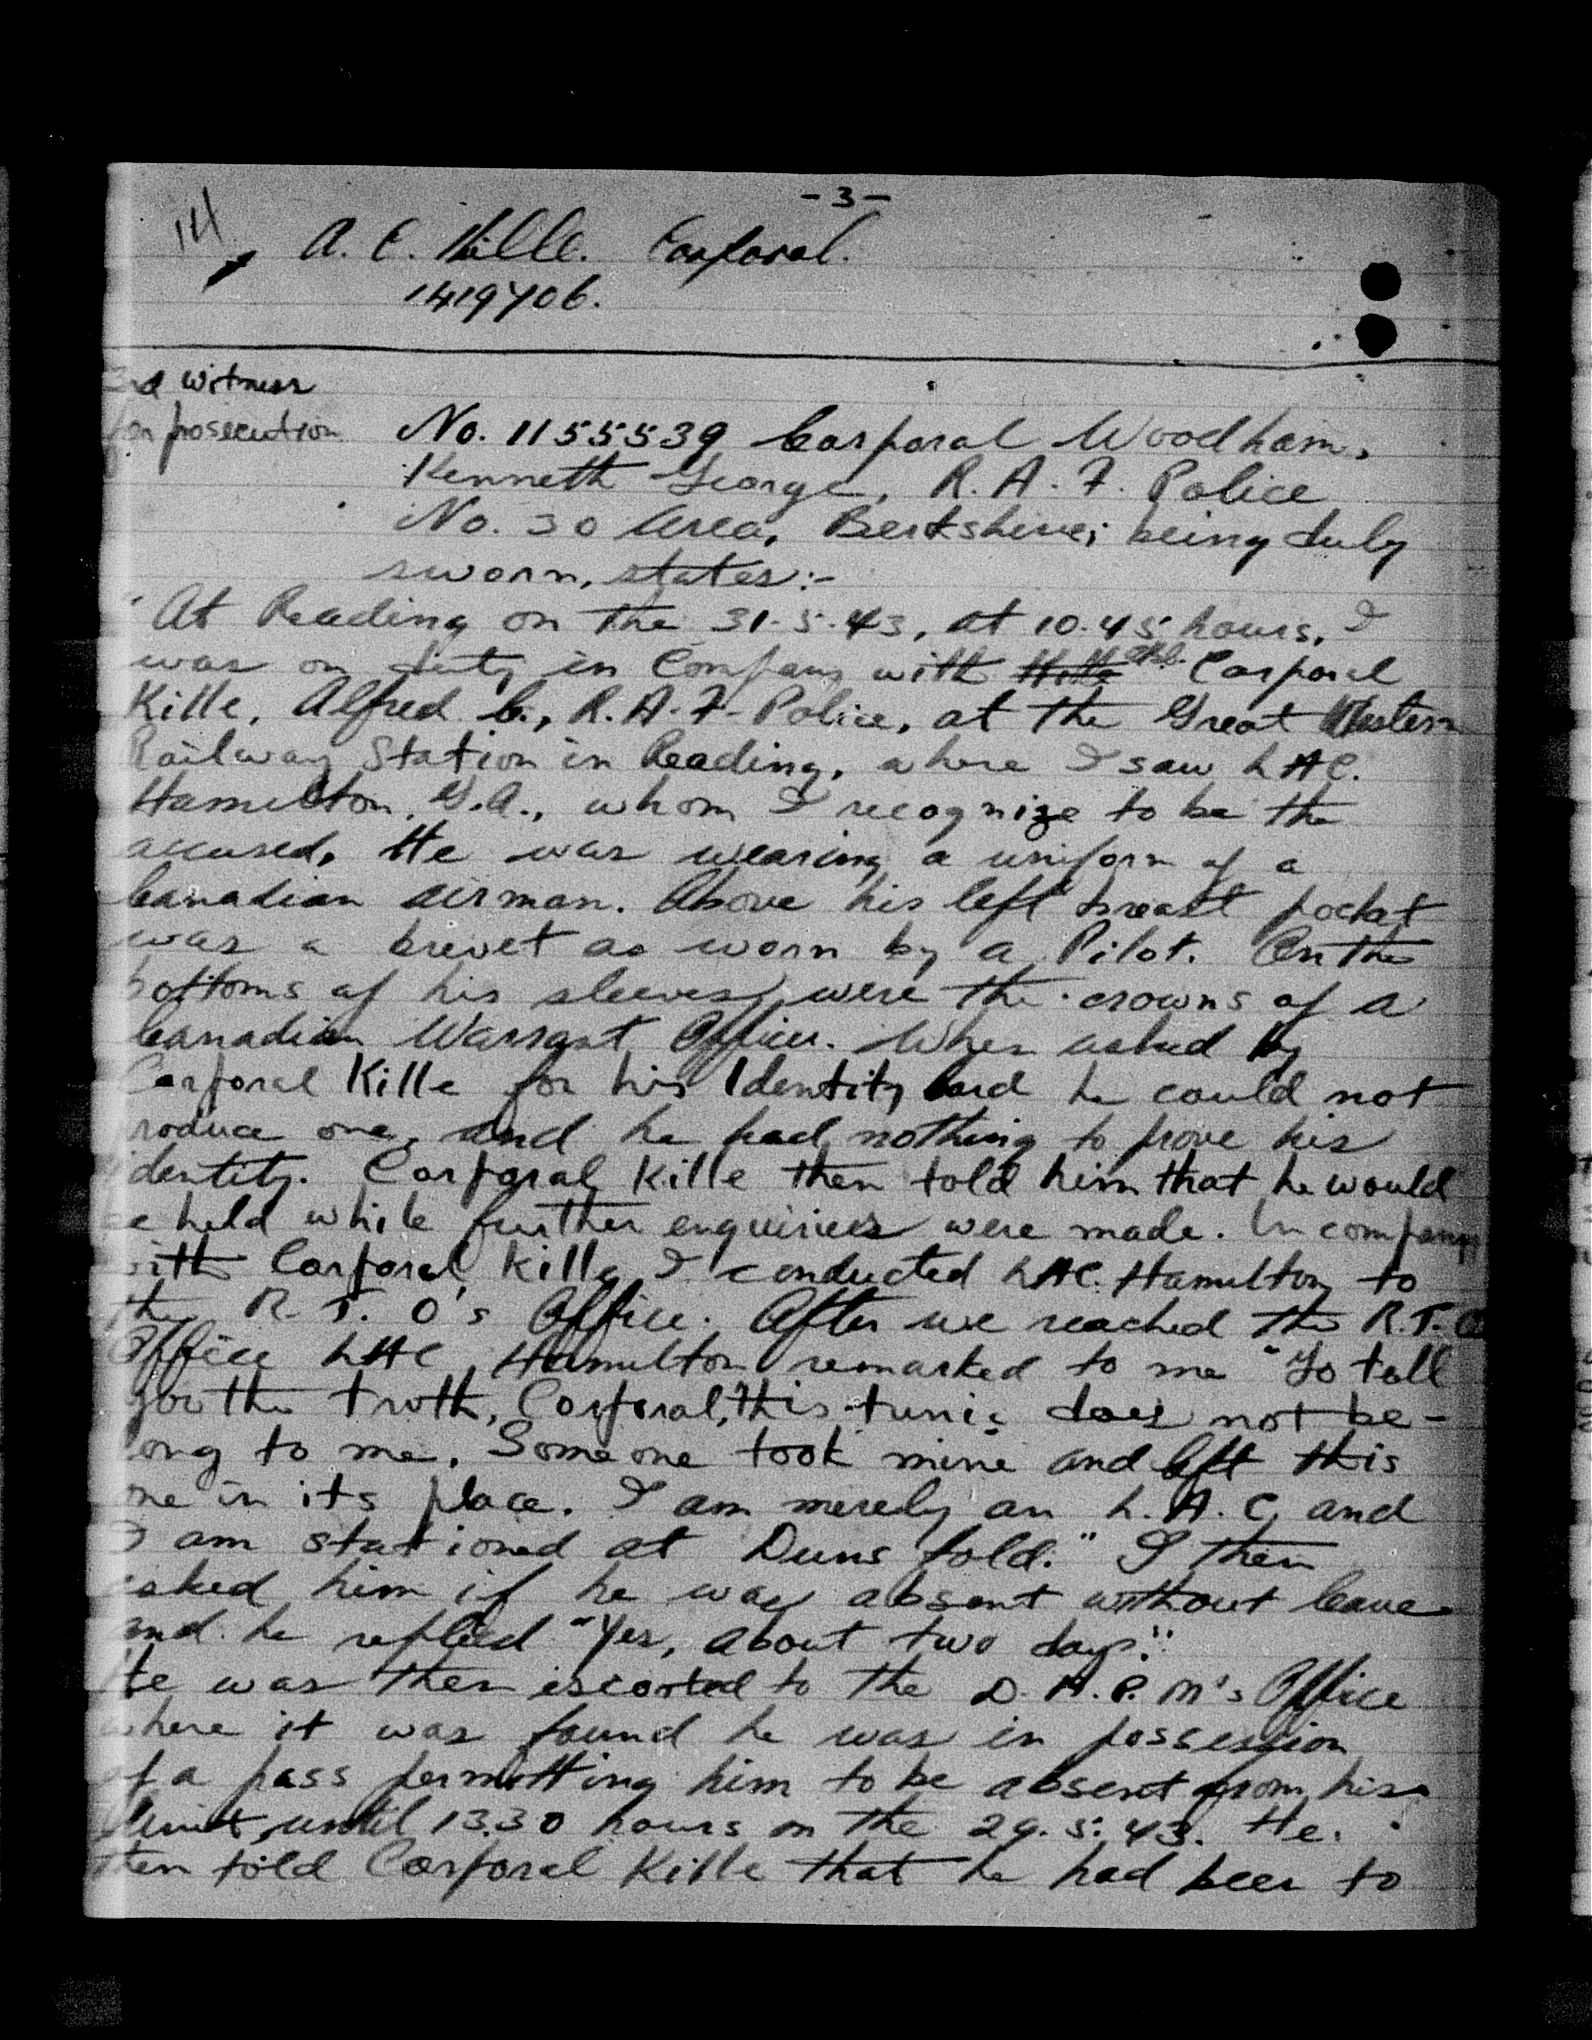 -3-
14
A. E. Kille. Corporal.
1419706.
2nd witness
for prosecution
No. 1155539 Corporal Woodham,
Kenneth George, R.A.F. Police
No. 30 Area, Berkshire; being duly
sworn, states:-
"At Reading on the 31.5.43, at 10.45 hours, I
was on duty in Company with Corporal
Kille, Alfred E., R.A.F. Police, at the Great Western
Railway Station in Reading, where I saw LAC.
Hamilton, G.A., whom I recognize to be the
accused. He was wearing a uniform of a
Canadian airman. Above his left breast pocket
was a brevet as worn by a Pilot. On the
bottoms of his sleeves were the crowns of a
Canadian Warrant Officer. When asked by
Corporal Kille for his Identity Card he could not
produce one, and he had nothing to prove his
identity. Corporal Kille then told him that he would
be held while further enquiries were made. In company
with Corporal Kille I conducted LAC. Hamilton to
the R.T.O's Office. After we reached the R.T.O
Office LAC Hamilton remarked to me "To tell
you the truth, Corporal, this tunic does not be-
long to me. Someone took mine and left this
one in its place. I am merely an L.A.C. and
I am stationed at Duns fold." I then
asked him if he was absent without leave
and he replied "Yes, about two days."
He was then escorted to the D.A.P.M's Office
where it was found he was in possession
of a pass permitting him to be absent from his
Unit, until 13.30 hours on the 29.5.43. He
then told Corporal Kille that he had been to